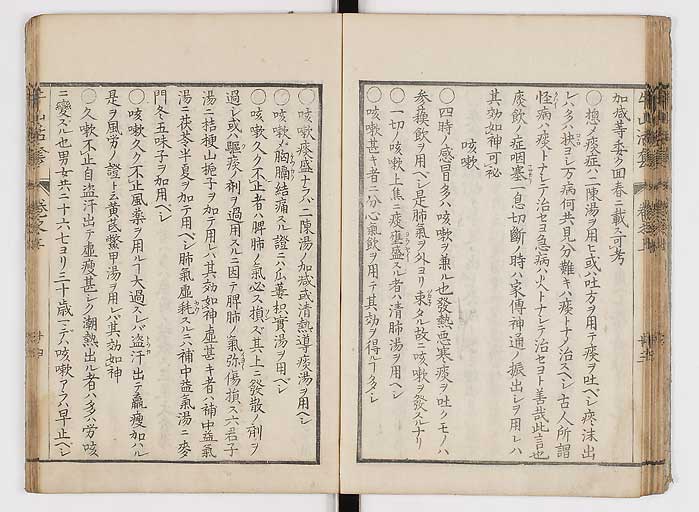 加減等委ク回春ニ載ス可考
〇惣ノ痰症ハ二陳湯ヲ用ヒ或ハ吐方ヲ用テ痰ヲ吐ベシ痰沫出
レバ多ハ扶ヨレ万病何共見分難キハ痰トナノ治スベシ古人所謂
怪病ハ痰トナレテ治セヨ急病ハ火トナレテ治セヨト善哉此言也
痰飲ノ症咽塞一息切斷ノ時ハ家傳神通ノ振出シヲ用レハ
其効如神可祕
咳嗽
〇四時ノ感冒多ハ咳嗽ヲ兼ル也發熱悪寒痰ヲ吐クモノハ
参蘓飲ヲ用ベシ是肺氣ヲ外ヨリ束タル故ニ咳嗽ヲ發スルナリ
〇一切ノ咳嗽上焦ニ痰壅盛スル者ハ清肺湯ヲ用ベシ
〇咳嗽甚キ者ニ分心氣飲ヲ用テ其効ヲ得ルコト多シ
〇咳嗽痰盛ナラバ二陳湯ノ加減或清熱導痰湯ヲ用ベシ
〇咳嗽メ胸膈結痛スル證ニハ瓜蔞枳實湯ヲ用ベシ
〇咳嗽久ク不止者ハ脾肺ノ氣必ス損ズ其上ニ發散ノ剤ヲ
過シ或ハ駆痰ノ剤ヲ過用スルニ因テ脾肺ノ氣弥傷損ス六君子
湯ニ桔梗山梔子ヲ加テ用レバ其効如神虚甚キ者ハ補中益氣
湯ニ茯苓半夏ヲ加テ用ベシ肺氣虚耗スルニハ補中益氣湯ニ麥
門冬五味子ヲ加用ベシ
〇咳嗽久ク不止風藥ヲ用ルコト大過スレバ盗汗出テ羸瘦加ハル
是ヲ風労ノ證ト云黄芪鱉甲湯ヲ用レバ其効如神
〇久嗽不止自盗汗出テ虚瘦甚シク潮熱出ル者ハ多ハ労咳
ニ變ズル也男女共二十六七ヨリ三十歳マデノ咳嗽アラハ早止ベシ